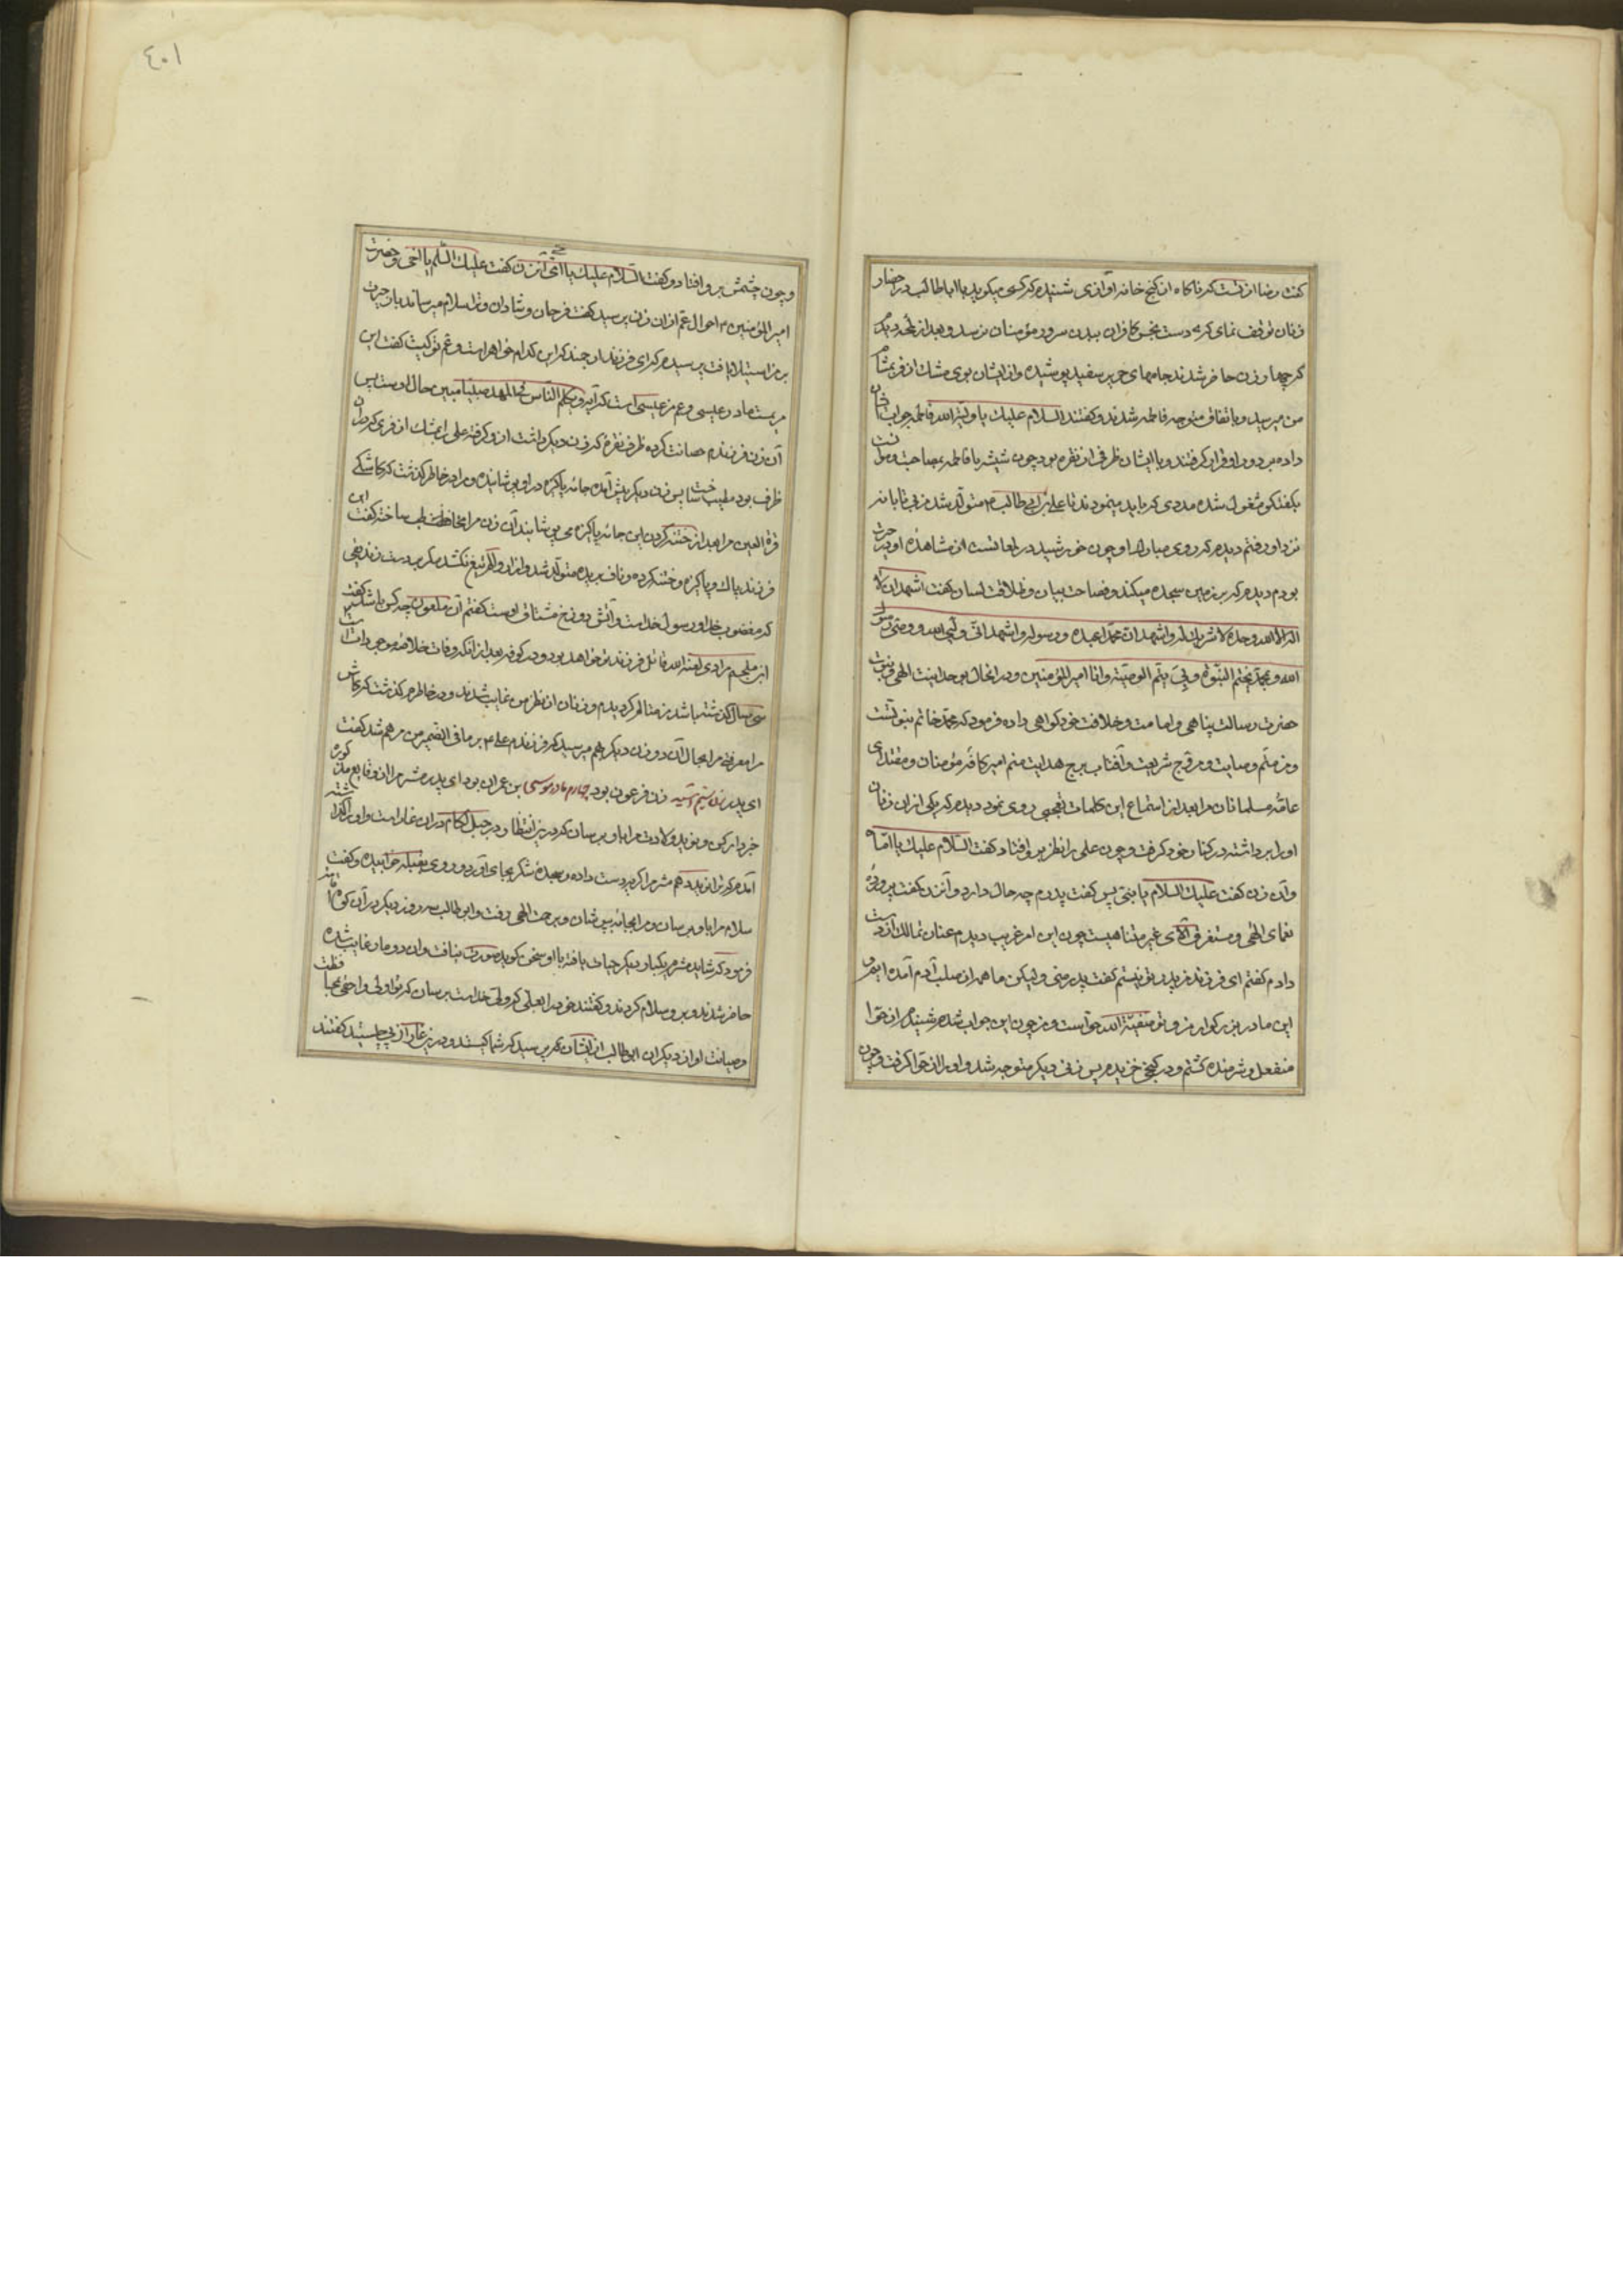 گفت رضا ازتست که ناکاه از کنج خانه آوازی شنیدم که کسی میکوید یا اباطالب در احضار
زنان توقف نمای که دست نجس کافران ببدن سرور مؤمنان نرسد و بعد از لحه دیدم
که چهار زن حاضر شدند جامهای حریر سفید پوشیده و از ایشان بوی مشک اذفر بمشام
من میرسید و باتفاق متوجه فاطمه شدند و کفتند السلام علیك یا ولیة الله فاطمه جواب ایشان
داده بر دور او قرار کرفتند و با ایشان ظرفی از نقره بود چون شیشه با فاطمه بمصاحبت و موانست
بکفتکو مشغول شده مددی که باید مینمودند تا علی بن ابی طالب م متولد شد من بی تابانه
نزد او رفتم دیدم که روی مبارك او چون خورشید در لمعانست از مشاهده او در حیرت
بودم دیدم که بر زمین سجده میکند و فصاحت بیان و طلاقت لسان کفت اشهد ان لا
اله الا الله وحده لا شریك له و اشهد ان محمدا عبده و رسوله و اشهد انی ولی الله و وصی رسول
الله و بمحمد یختم النبوة و بی یتم الوصیة و انا امیر المؤمنین و در انحال بوحدانیت الهی و نبوت
حضرت رسالت پناهی و امامت و خلافت خود کواهی داده فرمود که محمد خاتم نبوتست
و من متمم وصایت و مروج شریعت و آفتاب برج هدایت منم امیر کافه مؤمنان و مقتدای
عامه مسلمانان مرا بعد از استماع این کلمات تعجبی روی نمود دیدم که یکی از ان زنان
او را برداشته در کنار خود کرفت و چون علی را نظر بر او افتاد کفت السلام علیك یا اماه
و آن زن کفت علیك السلام یا بنی پس کفت پدرم چه حال دارد و آنزن کفت پرورده
نعمای الهی و مستغرق آلای غیر متناهیست چون این امر غریب دیدم عنان تمالك از دست
دادم کفتم ای فرزند من پدر تو نیستم کفت پدر منی ولیکن ما همه از صلب آدم آمده ایم و
این مادر بزرکوار من و تو صفیة الله حواست و من چون این جواب شدم شنیدم از حوا
منفعل و شرمنده کشتم و در کنجی خزیدم پس زنی دیکر متوجه شد و او را از حوا کرفت و چون
و چون چشمش بر او افتاد و کفت السلام علیك یا اختی آنزن کفت علیك السلم یا اخی و حضرت
امیر المؤمنین م احوال عم از ان زن پرسید کفت فرحان و شادان و ترا سلام میرساند باز حیرت
بر من استیلا یافت پرسیدم که ای فرزند ارجمند که این کدام خواهر است و عم تو کیست کفت این
مریمست مادر عیسی و عم من عیسی است که آیه و یکلم الناس فی المهد صبیا مبین حال اوست پس
آن زن فرزندم صانت کرده ظرف نقره که زن دیکر داشت از و کرفته علی را بمشك اذفری که در ان
ظرف بود مطیب ساخت پس زن دیکر پیش آمده جامه پاکیزه در او پوشانیده و مرا در خاطر کذشت که کاشکی
قرة العین مرا بعد از ختنه کردن این جامه پاکیزه می پوشانیدند آن زن مرا مخاطب ساخته کفت این
فرزند پاك و پاکیزه و ختنه کرده و ناف بریده متولد شد و او را الم تیغ نکشد مکر بر دست زندیقی
که مغضوب خدا و رسول خداست و آتش دوزخ مشتاق اوست کفتم آن ملعون چه کس باشد کفت
ابن ملجم مرادی لعنه الله قاتل فرزند تو خواهد بود و در کوفه بعد از انکه وفات خلاصه موجودات است
سی سال کذشته باشد من متالم کردیدم و زنان از نظر من غایب شدند و در خاطرم کذشت که کاش
مرا معرفتی مرا بحال آن دو زن دیکر بهم میرسید که فرزندم علی م بر ما فی الضمیر من ملهم شد کفت
ای پدر زن سیم آسیه زن فرعون بود چهارم مادر موسی بن عمران بود ای پدر مشرم را از وقایع مذکوره
خبردار کن و نوید ولادت مرا باو برسان که درین انتظار در جبل لکام در ان غار است و او را کذاشته
آمدم که ترا نوید دهم مشرم را کریه دست داده و سجده شکر بجای آورد و روی بقبله خوابیده و کفت
سلام مرا باو برسان و مرا بجامه بپوشان و برحمت الهی رفت و ابوطالب سه روز دیکر در آن کوه
فرمود که شاید مشرم یکبار دیکر حیات یافته با او سخن کوید صورت نیافت و ان دو مار غایب شده
حاضر شدند و بر و سلام کردند و کفتند خود را بعلی که ولی خداست برسان که تو اولی و احقی بمحافظت
و صیانت او از دیکران ابوطالب از ایشان پرسید که شما کیستید و درین غار از پی چیستید کفتند
٤٠١